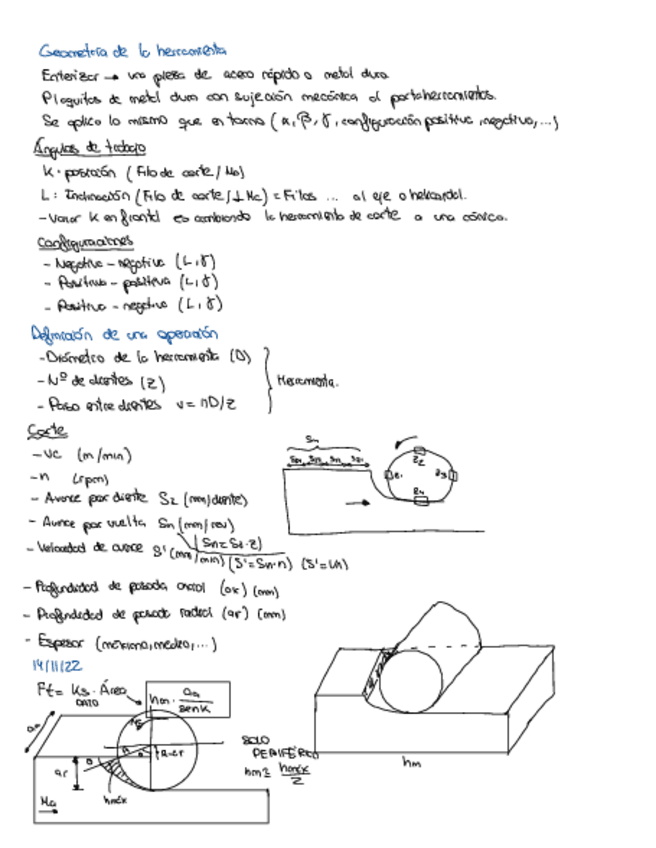 Geometría de la herramienta
Enteriza → una pieza de acero rápido o metal duro
Plaquitas de metal duro con sujeción mecánica al portaherramientas.
Se aplica lo mismo que en torno (α, β, γ, configuración positiva, negativa, ...)
Ángulos de trabajo
K: posición (Filo de corte / Ma)
L: Inclinación (Filo de corte / ⊥ Mc) = Filos ... al eje o helicoidal.
- Variar K en frontal es cambiando la herramienta de corte a una cónica.
Configuraciones
- Negativo - negativa (L, γ)
- Positivo - positiva (L, γ)
- Positivo - negativa (L, γ)
Definición de una operación
- Diámetro de la herramienta (D)
- Nº de dientes (Z)
- Paso entre dientes v = πD/z
Herramienta.
Corte
- Vc (m/min)
- n (rpm)
- Avance por diente Sz (mm/diente)
- Avance por vuelta Sn (mm/rev)
- Velocidad de avance S' (mm/min) (Sn = Sz·z) (S' = Sn·n)
- Profundidad de pasada axial (aa) (mm)
- Profundidad de pasada radial (ar) (mm)
- Espesor (máximo, medio, ...)
Sn
Sz1 Sz2 Sz3 Sz4
Z1 Z2 Z3 Z4
14/11/22
Ft = Ks · Área
DATO
hm · aa / senK
ar
Ma
hmáx
R-ar
SOLO
PERIFÉRICO
hm ≅ hmáx / 2
hm